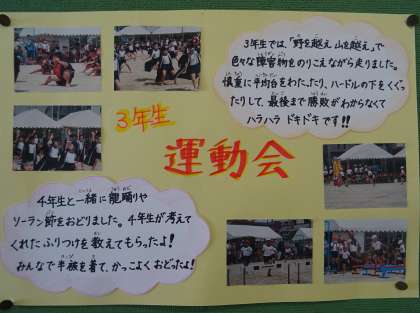 3年生では、「野を越え 山を越え」で
色々な障害物をのりこえながら走りました。
慎重に平均台をわたったり、ハードルの下をくぐっ
たりして、最後まで勝敗がわからなくて
ハラハラ ドキドキです!!
3年生
運動会
4年生と一緒に龍踊りや
ソーラン節をおどりました。4年生が考えて
くれたふりつけを教えてもらったよ!
みんなで半被を着て、かっこよくおどったよ!